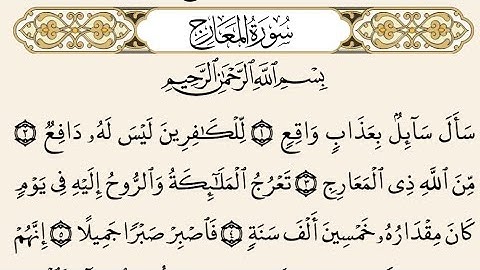 سُورَةُ المَعَارِجِ
بِسْمِ ٱللَّهِ ٱلرَّحْمَٰنِ ٱلرَّحِيمِ
سَأَلَ سَآئِلُۢ بِعَذَابٍ وَاقِعٍ ١ لِّلْكَٰفِرِينَ لَيْسَ لَهُۥ دَافِعٌ ٢
مِّنَ ٱللَّهِ ذِي ٱلْمَعَارِجِ ٣ تَعْرُجُ ٱلْمَلَٰٓئِكَةُ وَٱلرُّوحُ إِلَيْهِ فِي يَوْمٍ
كَانَ مِقْدَارُهُۥ خَمْسِينَ أَلْفَ سَنَةٍ ٤ فَٱصْبِرْ صَبْرًا جَمِيلًا ٥ إِنَّهُمْ